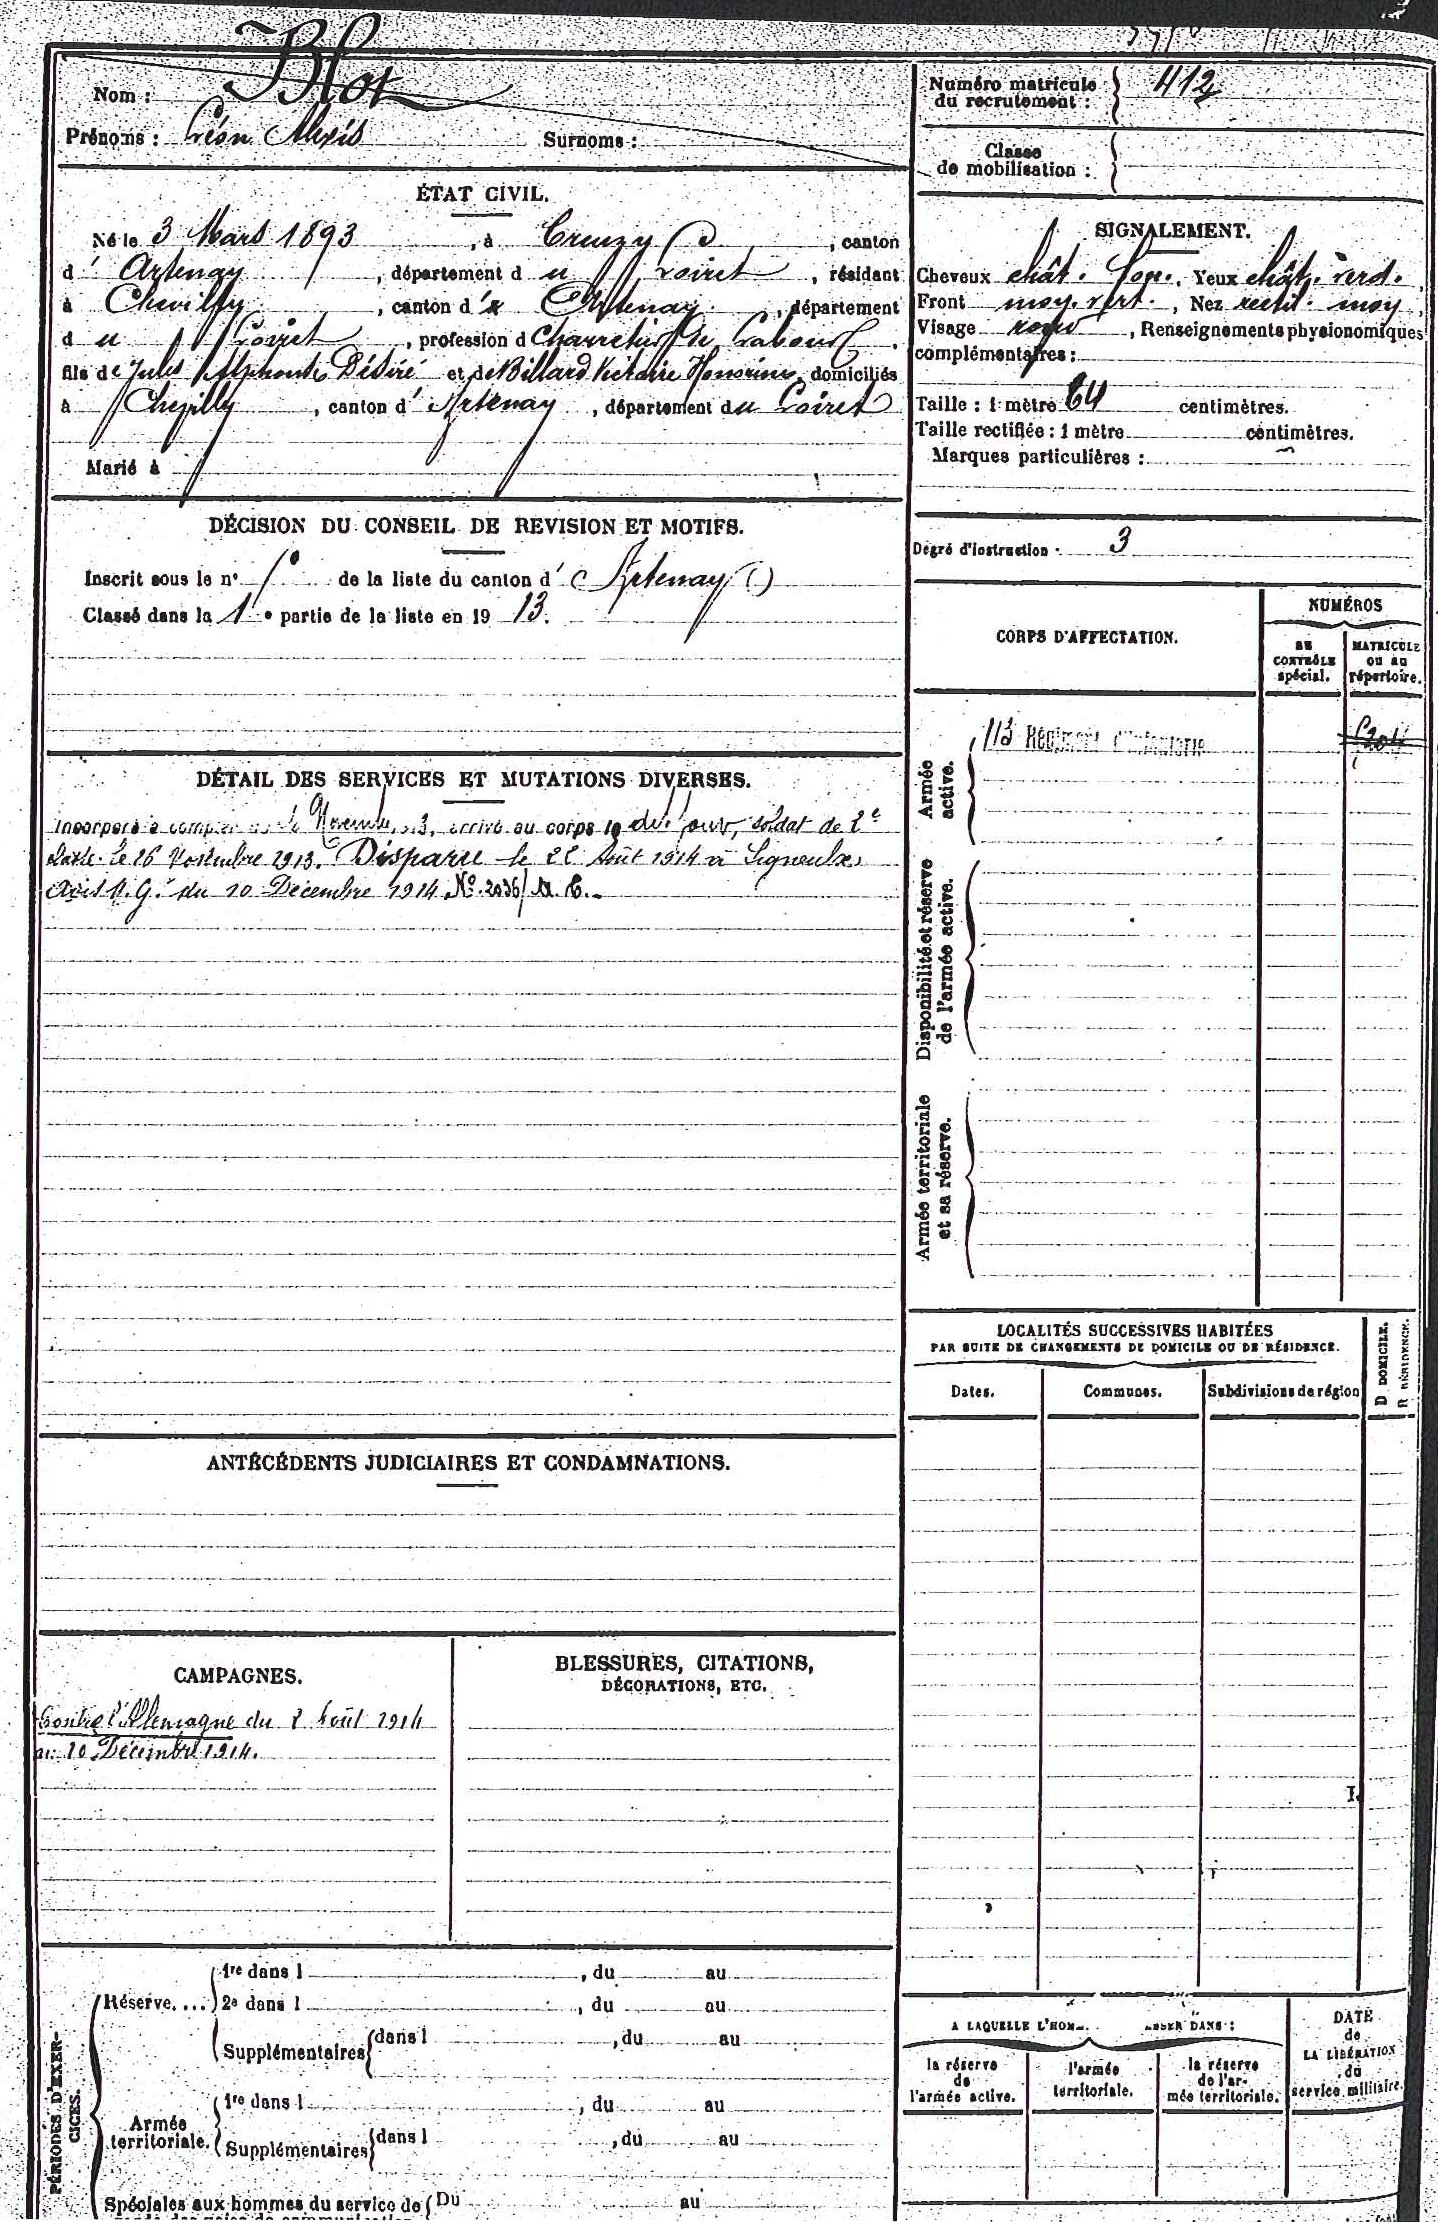 Nom : Blot
Prénoms : Léon Alexis Surnoms :
Numéro matricule du recrutement : 412
Classe de mobilisation :
ÉTAT CIVIL.
Né le 3 Mars 1893, à Creuzy, canton
d' Artenay, département du Loiret, résidant
à Chevilly, canton d' Artenay, département
du Loiret, profession d Charretier de Labour
fils de Jules Alphonse Désiré et de Billard Victoire Honorine, domiciliés
à Chevilly, canton d' Artenay, département du Loiret
Marié à
SIGNALEMENT.
Cheveux chât. fon., Yeux chât. verd.
Front moy. vert., Nez rectil. moy,
Visage rond, Renseignements physionomiques
complémentaires :
Taille : 1 mètre 64 centimètres.
Taille rectifiée : 1 mètre centimètres.
Marques particulières :
DÉCISION DU CONSEIL DE REVISION ET MOTIFS.
Inscrit sous le n° de la liste du canton d' Artenay
Classé dans la 1re partie de la liste en 1913.
Degré d'instruction : 3
DÉTAIL DES SERVICES ET MUTATIONS DIVERSES.
Incorporé à compter du Novembre 1913, arrivé au corps le dit jour, soldat de 2e
classe le 26 Novembre 1913. Disparu le 22 Août 1914 à Signeulx
Avis M.G. du 10 Décembre 1914 No. 2036/
CORPS D'AFFECTATION.
NUMÉROS
AU CONTRÔLE spécial.
MATRICULE ou au répertoire.
Armée active.
113 Régiment d'Infanterie
Disponibilité et réserve de l'armée active.
Armée territoriale et sa réserve.
LOCALITÉS SUCCESSIVES HABITÉES
PAR SUITE DE CHANGEMENTS DE DOMICILE OU DE RÉSIDENCE.
Dates. Communes. Subdivisions de région
D DOMICILE.
R RÉSIDENCE.
ANTÉCÉDENTS JUDICIAIRES ET CONDAMNATIONS.
CAMPAGNES.
Contre l'Allemagne du 2 Août 1914
au 10 Décembre 1914.
BLESSURES, CITATIONS,
DÉCORATIONS, ETC.
PÉRIODES D'EXERCICES.
Réserve....
1re dans l , du au
2e dans l , du au
Supplémentaires dans l , du au
Armée territoriale.
1re dans l , du au
Supplémentaires dans l , du au
Spéciales aux hommes du service de Du au
A LAQUELLE L'HOM
la réserve de l'armée active.
l'armée territoriale.
la réserve de l'armée territoriale.
DATE
de
LA LIBÉRATION
du
service militaire.